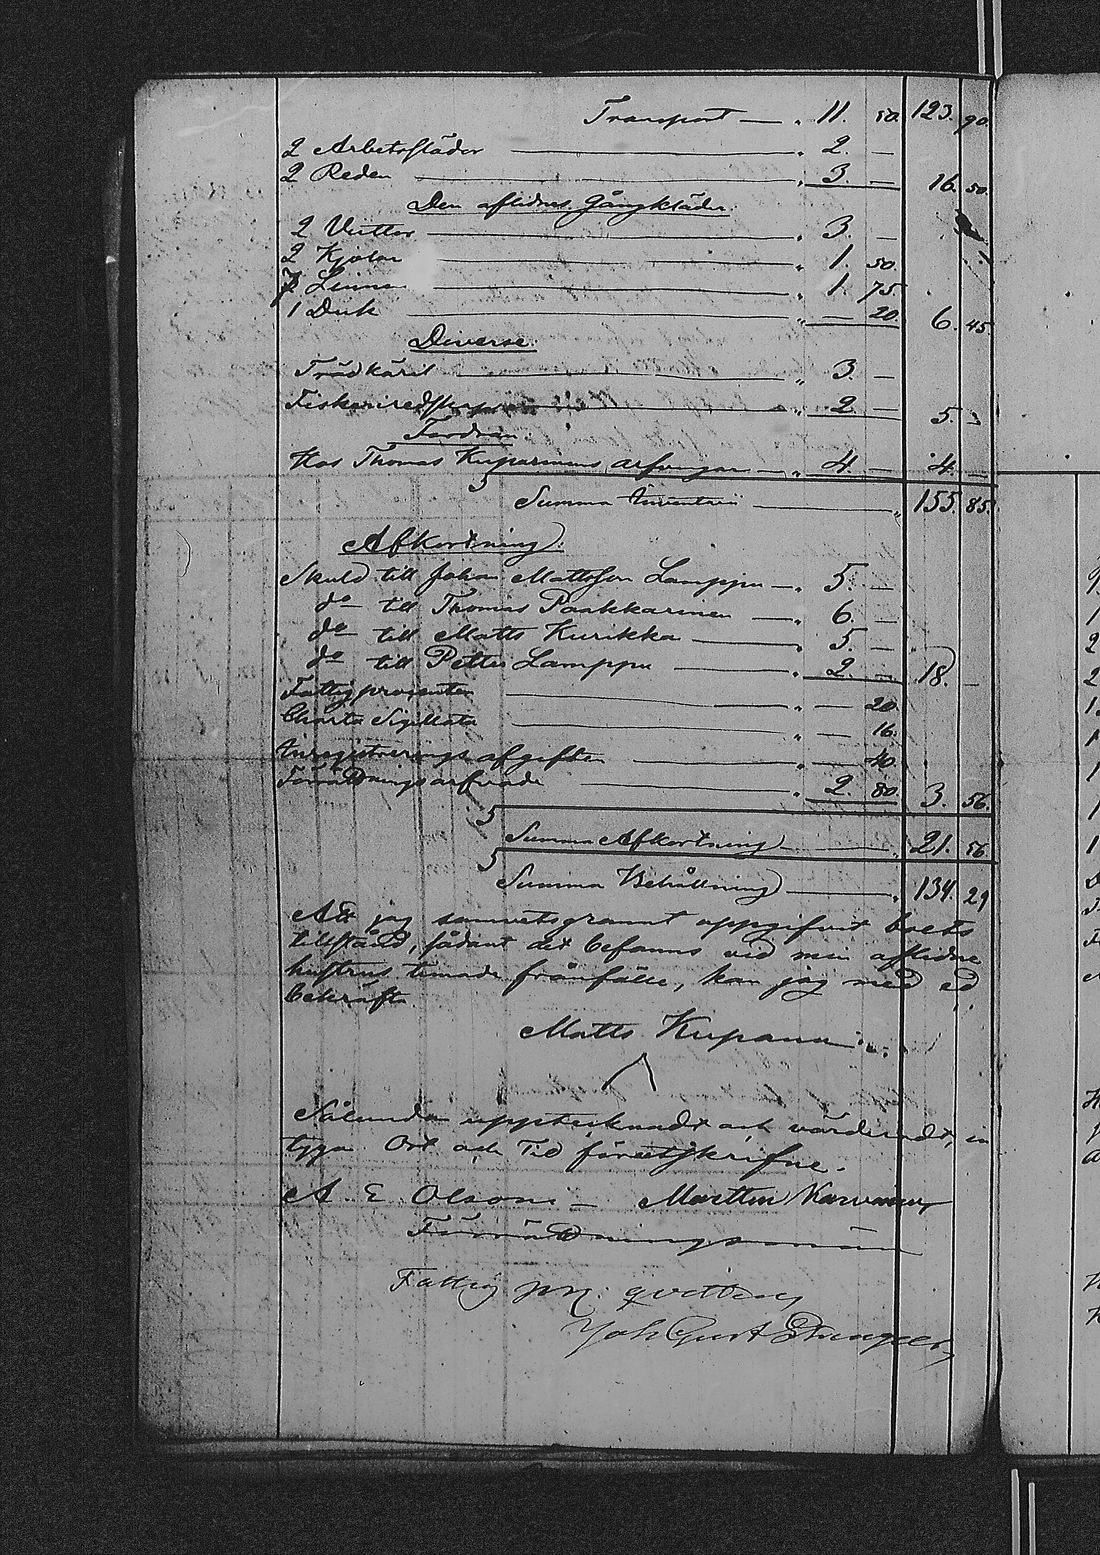 Transport — „ 11. 50. 123. 90.
2 Arbetsslädor „ 2. —
2 Reden „ 3. — 16. 50.
Den aflidnes Gångkläder.
2 „ 3. —
2 Kjolar „ 1. 50.
7 Linne „ 1. 75.
1 Duk „ — 20. 6. 45
Diverse.
Trädkäril „ 3. —
Fiskeriredskap „ 2 — 5. —
Fordran
Hos Thomas Kuparinens arfvingar — „ 4 — 4. —
Summa Inventarii „ 155. 85.
Afkortning.
Skuld till Johan Mattsson Lamppu — „ 5. —
do till Thomas Paakkarinen — „ 6. —
do till Matts Kurikka „ 5. —
do till Petter Lamppu „ 2. — 18. —
Fattigprocenten „ — 20
Charta Sigillata „ — 16.
Inregistreringsafgiften „ — 40.
Förrättningsarfvode „ 2 80. 3. 56.
S
Summa Afkortning „ 21. 56
S
Summa Behållning „ 134. 29
Att jag samvetsgrannt uppgifvit boets
tillstånd, sådant det befanns vid min aflidne
hustrus timade frånfälle, kan jag med ed
bekräfta.
Matts
Sålunda upptecknadt och värderadt, in
tyga Ort och Tid föreskrifne.
A. E. Olsoni — Martten
Förrättningsmän
Fattig qvitteras
Joh Gust